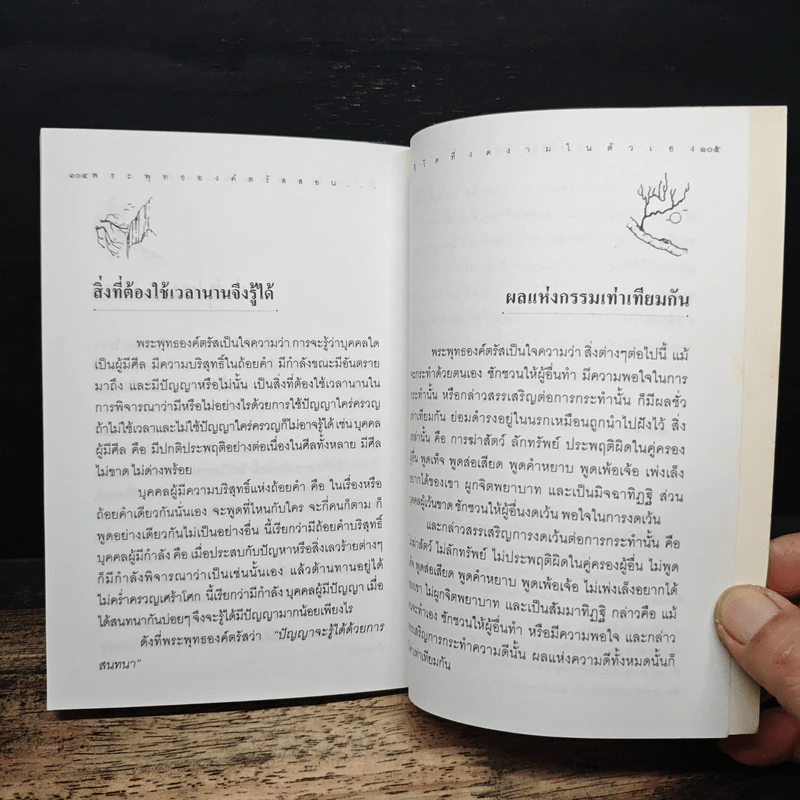 ๑๐๔ พระพุทธองค์ตรัสสอน...
สิ่งที่ต้องใช้เวลานานจึงรู้ได้
พระพุทธองค์ตรัสเป็นใจความว่า การจะรู้ว่าบุคคลใด
เป็นผู้มีศีล มีความบริสุทธิ์ในถ้อยคำ มีกำลังขณะมีอันตราย
มาถึง และมีปัญญาหรือไม่นั้น เป็นสิ่งที่ต้องใช้เวลานานใน
การพิจารณาว่ามีหรือไม่อย่างไรด้วยการใช้ปัญญาใคร่ครวญ
ถ้าไม่ใช้เวลาและไม่ใช้ปัญญาใคร่ครวญก็ไม่อาจรู้ได้ เช่น บุคคล
ผู้มีศีล คือ มีปกติประพฤติอย่างต่อเนื่องในศีลทั้งหลาย มีศีล
ไม่ขาด ไม่ด่างพร้อย
บุคคลผู้มีความบริสุทธิ์แห่งถ้อยคำ คือ ในเรื่องหรือ
ถ้อยคำเดียวกันนั่นเอง จะพูดที่ไหนกับใคร จะกี่คนก็ตาม ก็
พูดอย่างเดียวกันไม่เป็นอย่างอื่น นี้เรียกว่ามีถ้อยคำบริสุทธิ์
บุคคลผู้มีกำลัง คือ เมื่อประสบกับปัญหาหรือสิ่งเลวร้ายต่างๆ
ก็มีกำลังพิจารณาว่าเป็นเช่นนั้นเอง แล้วต้านทานอยู่ได้
ไม่คร่ำครวญเศร้าโศก นี้เรียกว่ามีกำลัง บุคคลผู้มีปัญญา เมื่อ
ได้สนทนากันบ่อยๆ จึงจะรู้ได้มีปัญญามากน้อยเพียงไร
ดังที่พระพุทธองค์ตรัสว่า "ปัญญาจะรู้ได้ด้วยการ
สนทนา"
ชีวิตที่งดงามในตัวเอง ๑๐๕
ผลแห่งกรรมเท่าเทียมกัน
พระพุทธองค์ตรัสเป็นใจความว่า สิ่งต่างๆต่อไปนี้ แม้
จะกระทำด้วยตนเอง ชักชวนให้ผู้อื่นทำ มีความพอใจในการ
กระทำนั้น หรือกล่าวสรรเสริญต่อการกระทำนั้น ก็มีผลชั่ว
เท่าเทียมกัน ย่อมดำรงอยู่ในนรกเหมือนถูกนำไปฝังไว้ สิ่ง
เหล่านั้น คือ การฆ่าสัตว์ ลักทรัพย์ ประพฤติผิดในคู่ครอง
ผู้อื่น พูดเท็จ พูดส่อเสียด พูดคำหยาบ พูดเพ้อเจ้อ เพ่งเล็ง
อยากได้ของเขา ผูกจิตพยาบาท และเป็นมิจฉาทิฏฐิ ส่วน
บุคคลผู้เว้นขาด ชักชวนให้ผู้อื่นงดเว้น พอใจในการงดเว้น
และกล่าวสรรเสริญการกระทำต่อการกระทำนั้น คือ
ไม่ฆ่าสัตว์ ไม่ลักทรัพย์ ไม่ประพฤติผิดในคู่ครองผู้อื่น ไม่พูด
พูดส่อเสียด พูดคำหยาบ พูดเพ้อเจ้อ ไม่เพ่งเล็งอยากได้
ของเขา ไม่ผูกจิตพยาบาท และเป็นสัมมาทิฏฐิ กล่าวคือ แม้
จะทำเอง ชักชวนให้ผู้อื่นทำ หรือมีความพอใจ และกล่าว
สรรเสริญการกระทำความดีนั้น ผลแห่งความดีทั้งหมดนั้นก็
เท่าเทียมกัน